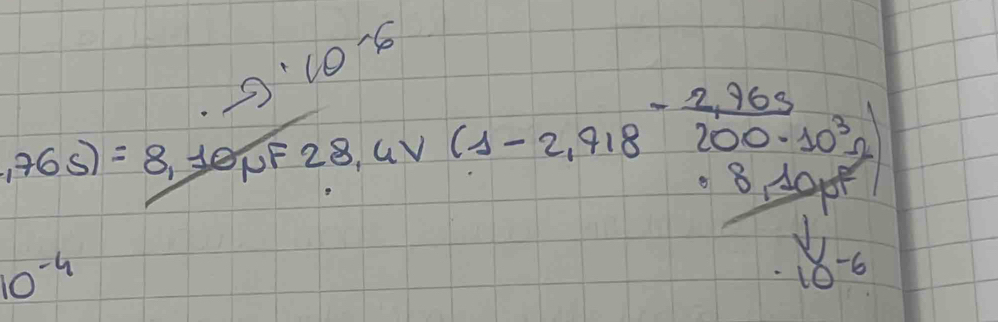 · 10^-6
,76s) = 8,10μF 28,4V (1 - 2,718 ^ - 2,76s / 200 · 10³Ω · 8,10μF)
· 10^-6
10^-4